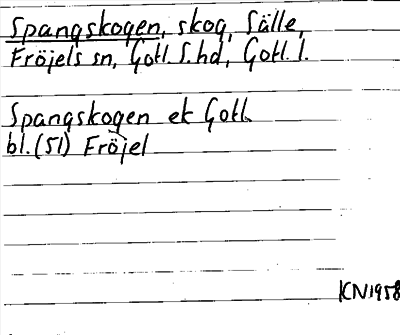 Spangskogen, skog, Sälle,
Fröjels sn, Gotl. S. hd, Gotl. l.
Spangskogen ek Gotl.
bl. (51) Fröjel
KN1958